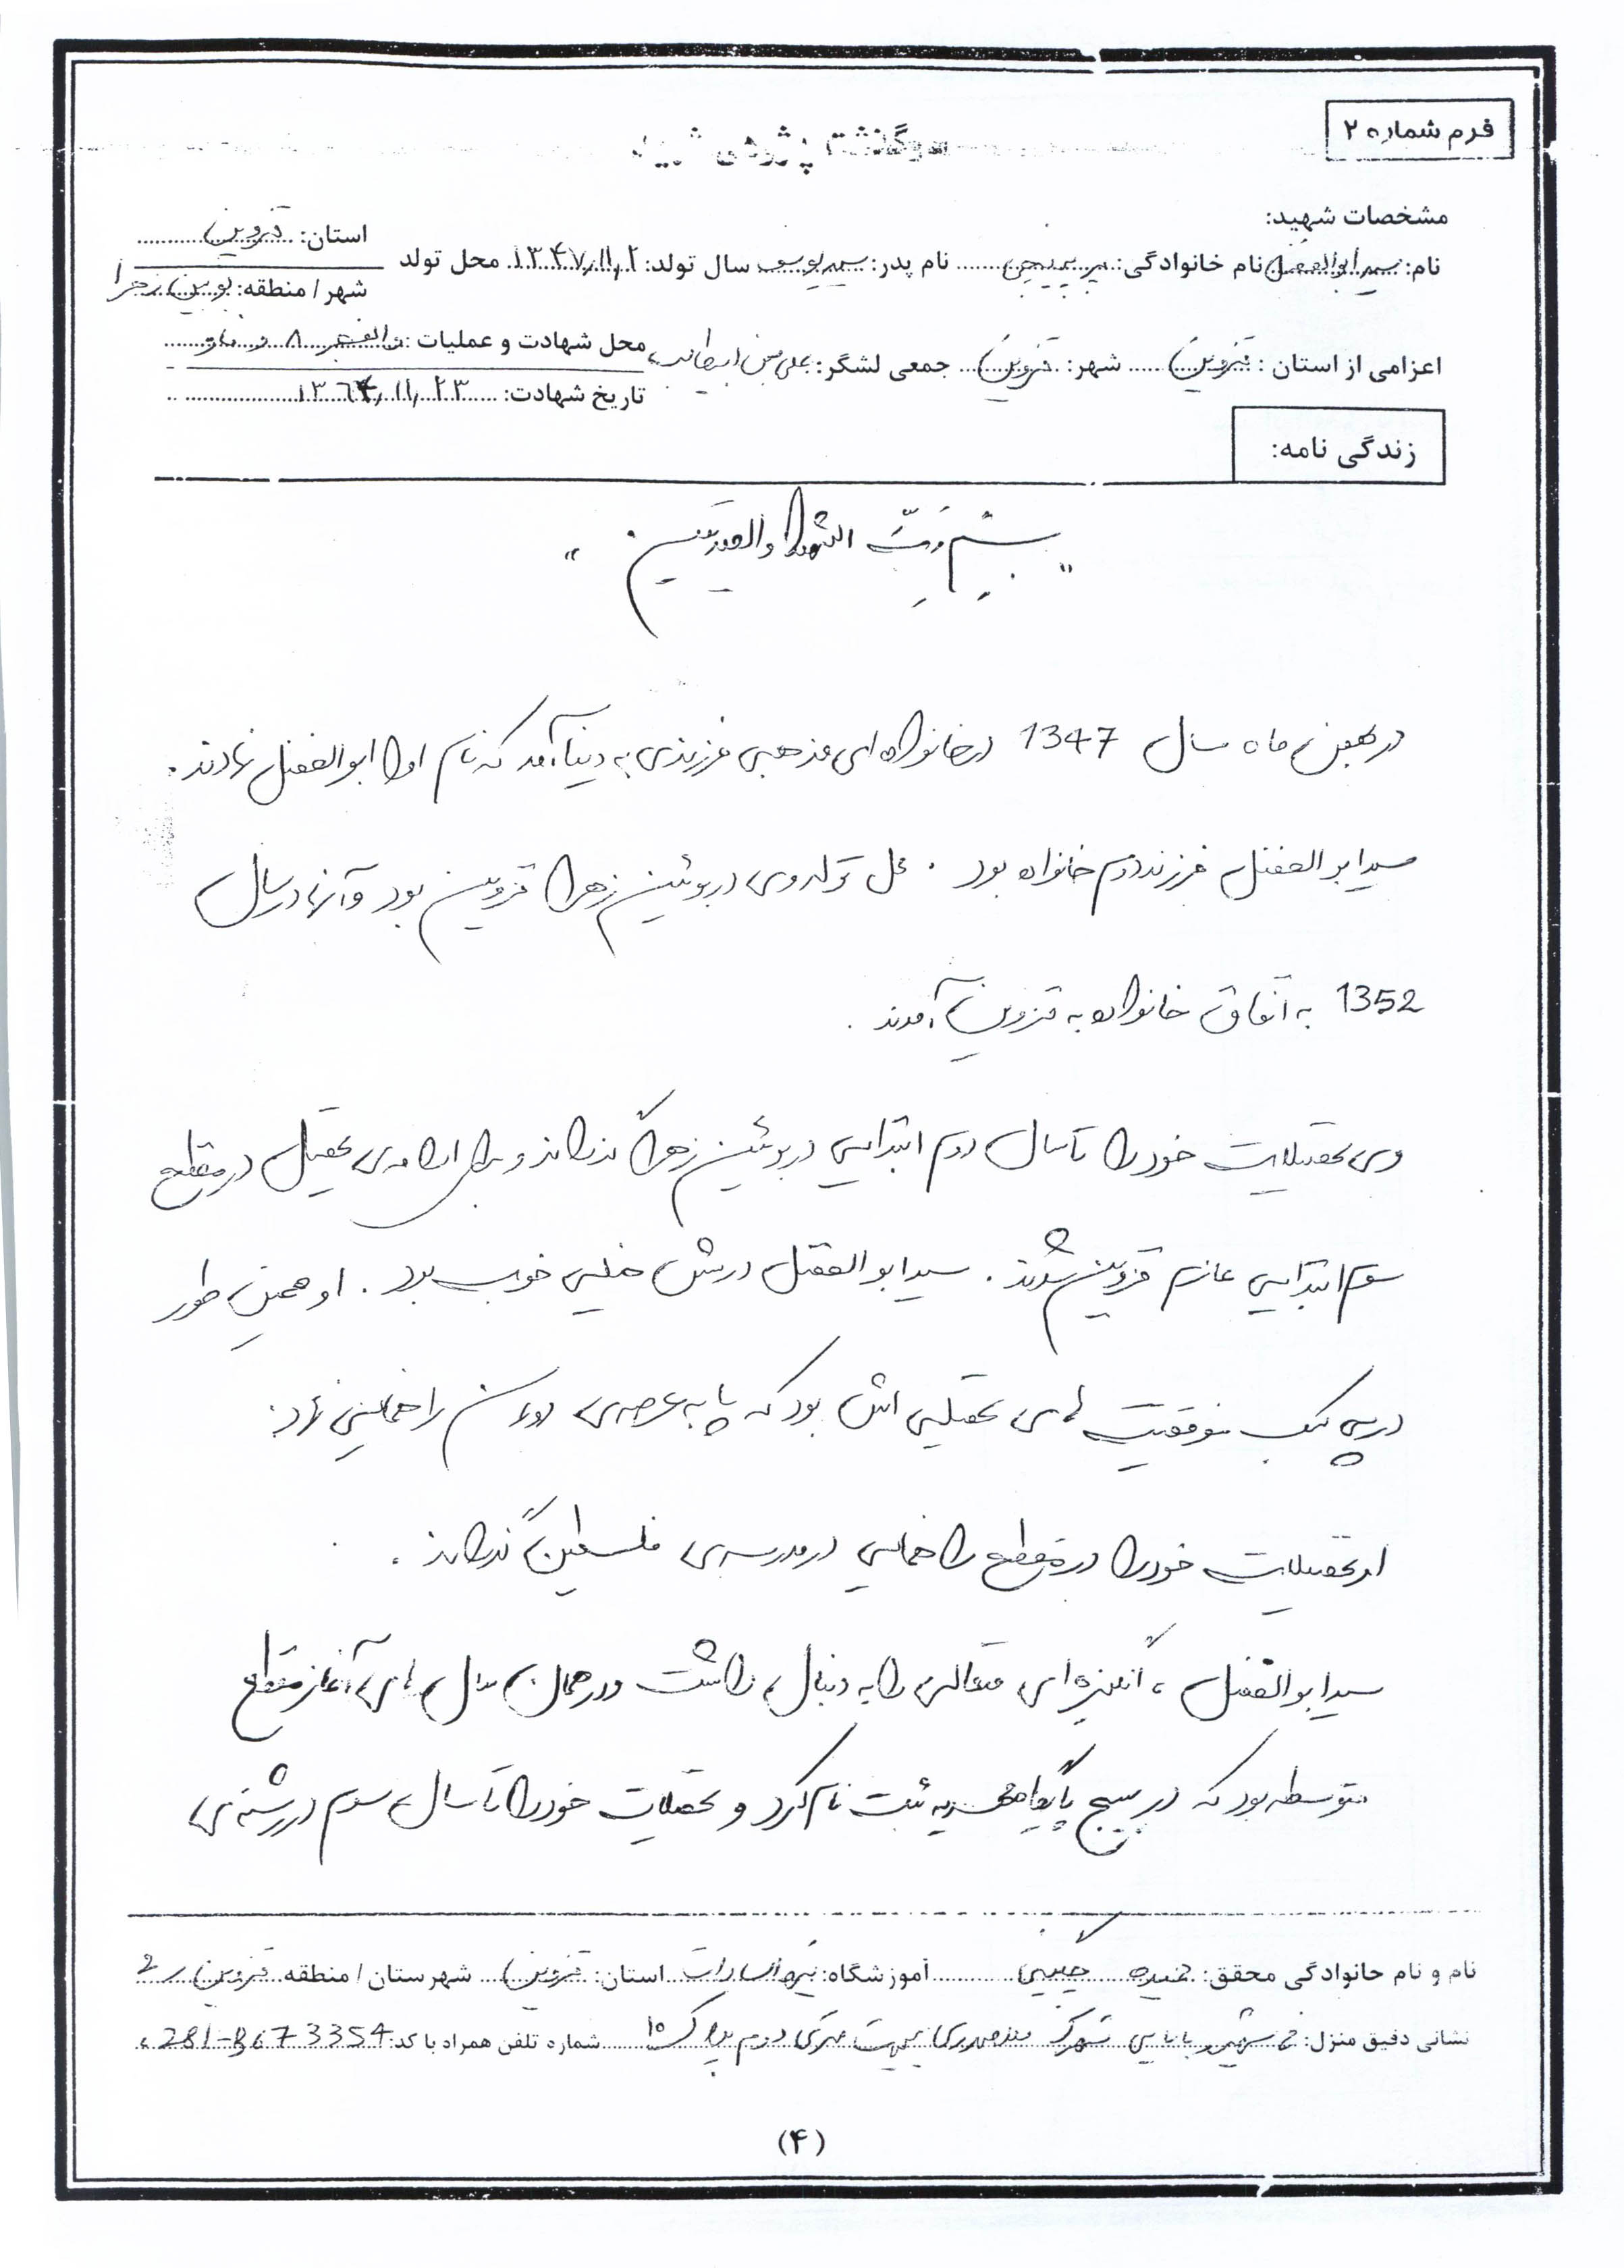 فرم شماره ۲
سرگذشت پژوهی شهید
مشخصات شهید:
نام: سید ابوالفضل نام خانوادگی: نام پدر: سید یوسف سال تولد: ۱۳۴۷/۱۱/۲ محل تولد
استان: قزوین
شهر / منطقه: بوئین زهرا
اعزامی از استان: قزوین شهر: قزوین جمعی لشگر: علی بن ابیطالب
محل شهادت و عملیات: والفجر ۸
تاریخ شهادت: ۱۳۶۴/۱۱/۲۳
زندگی نامه:
" بِسْمِ رَبِّ الشهداء والصدیقین "
در بهمن ماه سال 1347 در خانواده ای مذهبی فرزندی به دنیا آمد که نام او را ابوالفضل نهادند.
سید ابوالفضل فرزند دوم خانواده بود . محل تولد وی در بوئین زهرا قزوین بود و آنها در سال
1352 به اتفاق خانواده به قزوین آمدند .
وی تحصیلات خود را تا سال دوم ابتدایی در بوئین زهرا گذراند و برای ادامه ی تحصیل در مقطع
سوم ابتدایی عازم قزوین شدند . سید ابوالفضل درسش خیلی خوب بود . او همین طور
در پی کسب موفقیت های تحصیلی اش بود که پا به عرصه ی دوران راهنمایی نهاد.
او تحصیلات خود را در مقطع راهنمایی در مدرسه ی فلسطین گذراند .
سید ابوالفضل ، انگیزه ای متعالی را به دنبال داشت و در همان سال های آغاز مقطع
متوسطه بود که در بسیج پایگاه ثبت نام کرد و تحصیلات خود را تا سال سوم در رشته ی
نام و نام خانوادگی محقق: آموزشگاه: استان: قزوین شهرستان / منطقه قزوین 2
نشانی دقیق منزل: خ شهید بابایی شهرک متری دوم پلاک ۱۵ شماره تلفن همراه با کد: 281-3673354
(۴)